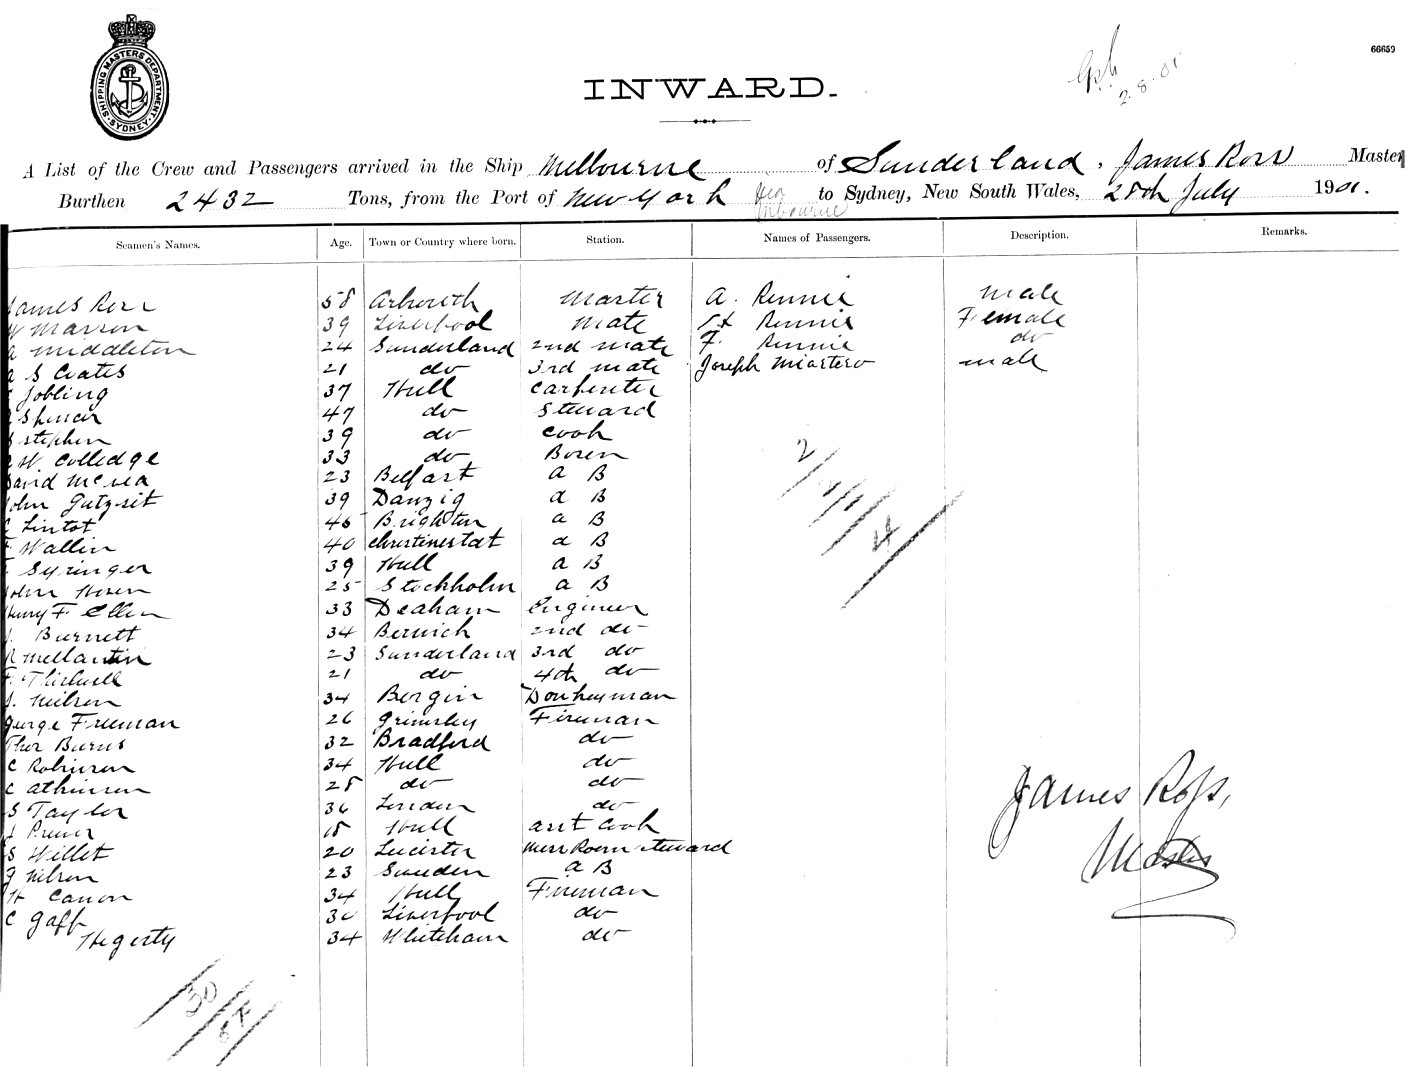 SHIPPING MASTERS DEPARTMENT SYDNEY
66659
2.8.01
INWARD.
A List of the Crew and Passengers arrived in the Ship Melbourne of Sunderland, James Ross Master
Burthen 2432 Tons, from the Port of New York via Melbourne to Sydney, New South Wales, 28th July 1901.
Seamen's Names. Age. Town or Country where born. Station. Names of Passengers. Description. Remarks.
James Ross 58 Arbroath Master A. Rennie Male
Marson 39 Liverpool Mate Rennie Female
Middleton 24 Sunderland 2nd Mate F. Rennie do
S Coates 21 do 3rd Mate Joseph Male
Jobling 37 Hull Carpenter
Spencer 47 do Steward
Stephen 39 do Cook
W. Colledge 33 do Bosen
David McVea 23 Belfast A B
John Gutzeit 39 Danzig A B
C Lintot 46 Brighton A B
F Wallin 40 Christinestat A B
Syringer 39 Hull A B
John 25 Stockholm A B
Henry F. Ellen 33 Engineer
J. Burnett 34 Berwick 2nd do
23 Sunderland 3rd do
F. Thirlwell 21 do 4th do
J. Nielsen 34 Bergin Donkeyman
George Freeman 26 Grimsley Fireman
Thos Burns 32 Bradford do
C Robinson 34 Hull do
C Atkinson 28 do do
S Taylor 36 London do
18 Hull asst Cook
S Willet 20 Leicister Mess Room Steward
J Nilson 23 Sweden A B
H Canon 34 Hull Fireman
C Gaff 30 Liverpool do
Hegerty 34 Whiteham do
2/1/1
4
James Ross,
Master
30/